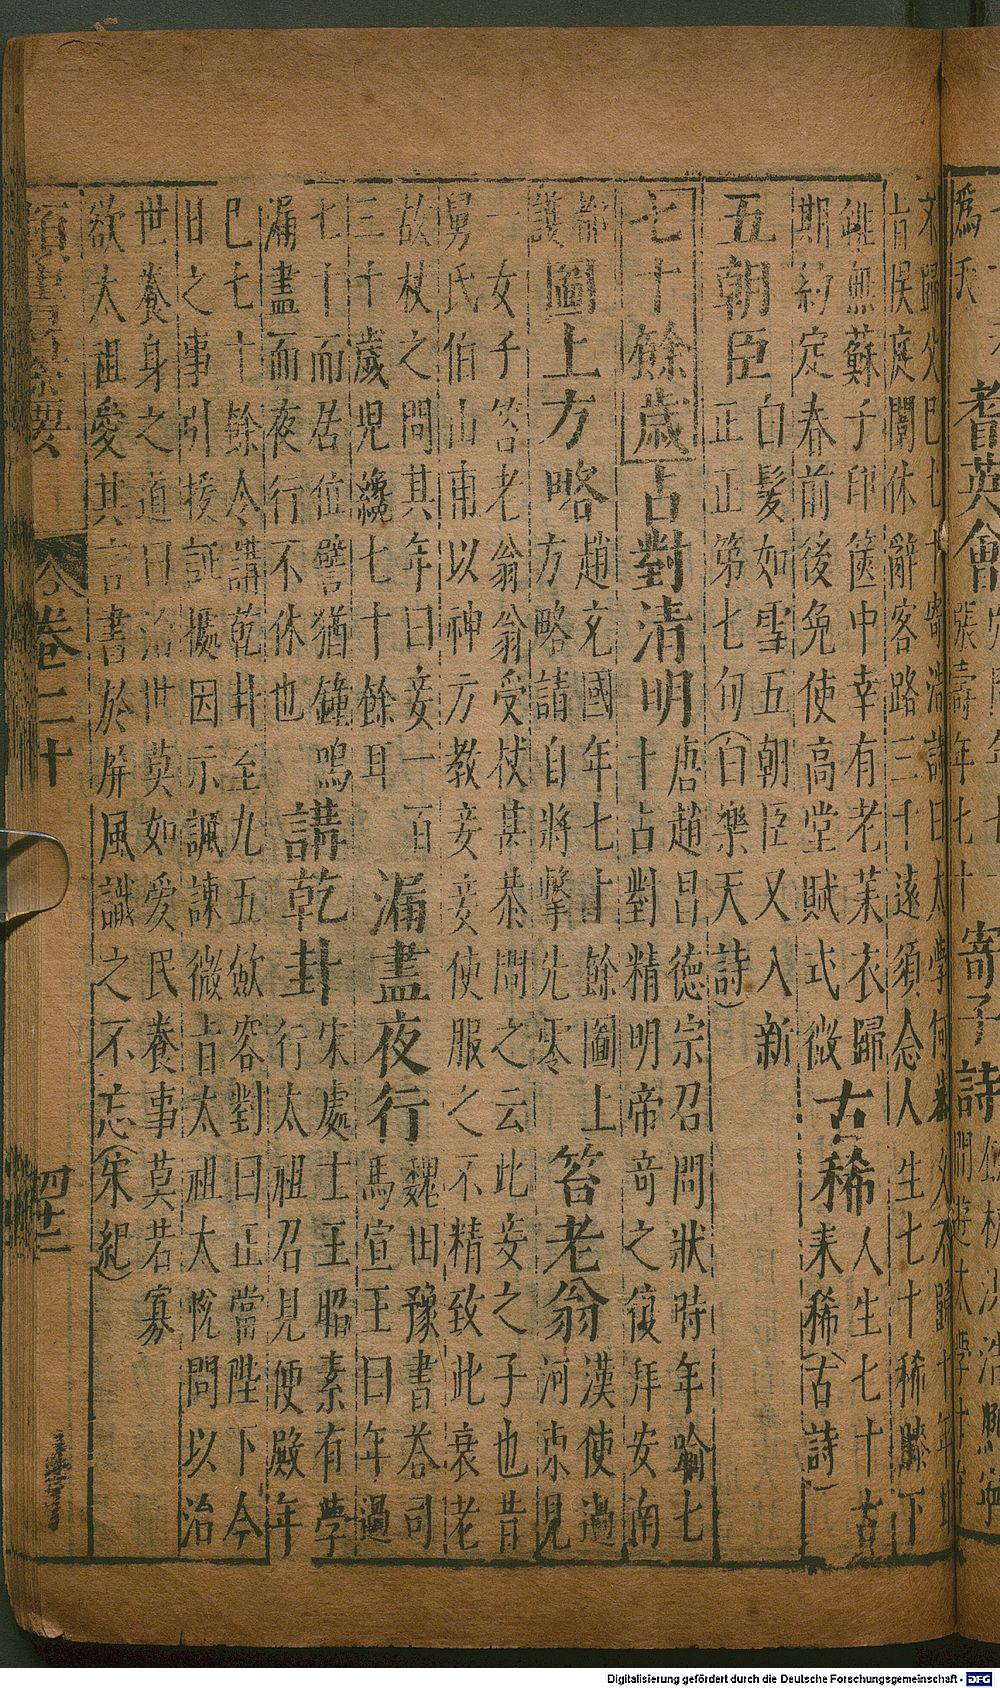 耆英會 張壽年七十 寄子詩
歸父已七十寄浩詩曰太學何蕃久不歸十年甘
旨悮庭闈休辭客路三千遠須念人生七十稀膝下
雖無蘇子印篋中幸有老萊衣歸
期約定春前後免使高堂賦式微
古稀 人生七十古
來稀(古詩)
五朝臣 白髮如雪五朝臣又入新
正正第七旬(白樂天詩)
七十餘歲 占對清明 唐趙昌德宗召問狀時年踰七
十占對精明帝奇之復拜安南
都
護
圖上方略 趙充國年七十餘圖上
方略請自將擊先零
答老翁 漢使過
河東見
一女子答老翁翁受杖甚恭問之云此妾之子也昔
舅氏伯山甫以神方教妾妾使服之不精致此衰老
故杖之問其年曰妾一百
三十歲兒纔七十餘耳
漏盡夜行 魏田豫書荅司
馬宣王曰年過
七十而居位譬猶鐘鳴
漏盡而夜行不休也
講乾卦 宋處士王昭素有學
行太祖召見便殿年
巳七十餘令講乾卦至九五斂容對曰正當陛下今
日之事引援証據因示諷諫微旨太祖大悅問以治
世養身之道曰治世莫如愛民養事莫若寡
欲太祖愛其言書於屏風識之不忘(宋紀)
類書纂要 卷二十
Digitalisierung gefördert durch die Deutsche Forschungsgemeinschaft - DFG